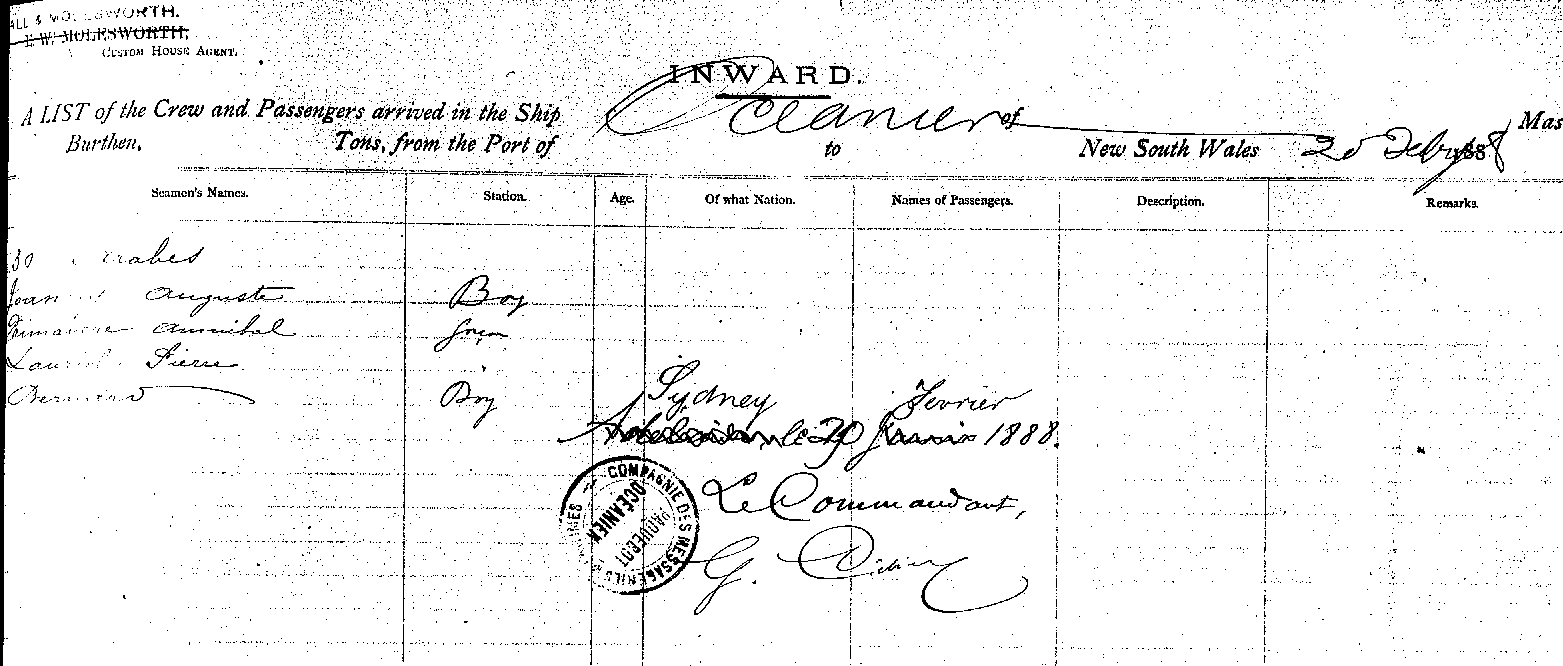 ALL & MOLESWORTH.
E. W. MOLESWORTH,
CUSTOM HOUSE AGENT.
INWARD.
A LIST of the Crew and Passengers arrived in the Ship Oceanien of Mas
Burthen, Tons, from the Port of to New South Wales 20 Feby 1888
Seamen's Names. Station. Age. Of what Nation. Names of Passengers. Description. Remarks.
30 arabes
Auguste Boy
Annibal
Pierre
Bernard Boy
Sydney Fevrier
le 20 1888.
COMPAGNIE DES MESSAGERIES
PAQUEBOT
OCÉANIEN
Le Commandant,
G.